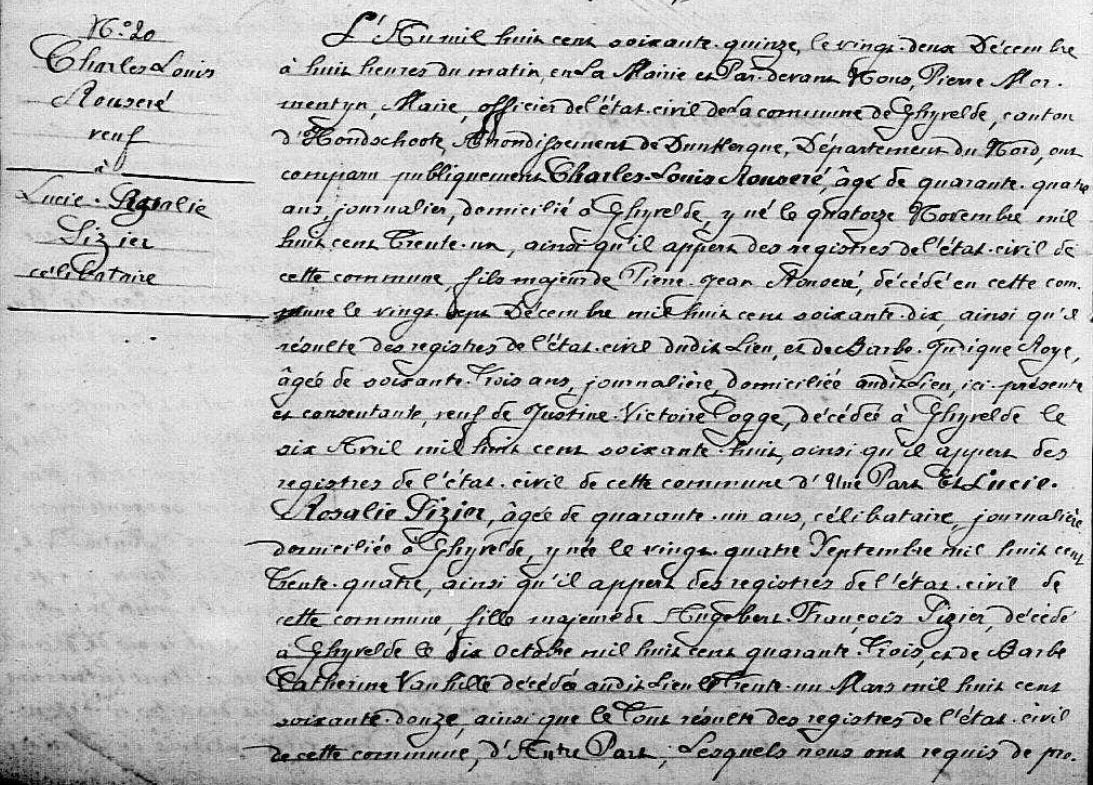 N.º 20
Charles Louis
Rouseré
veuf
à
Lucie-Rosalie
Pizier
célibataire
L'An mil huit cent soixante-quinze, le vingt-deux Décembre
à huit heures du matin, en La Mairie et Par-devant Nous, Pierre Mor-
mentyn, Maire, officier de l'état-civil de La commune de Ghyvelde, canton
d'Hondschoote, Arrondissement de Dunkerque, Département du Nord, ont
comparu publiquement Charles-Louis Rouseré, âgé de quarante-quatre
ans, journalier, domicilié à Ghyvelde, y né le quatorze Novembre mil
huit cent Trente-un, ainsi qu'il appert des registres de l'état-civil de
cette commune, fils majeur de Pierre-Jean Rouseré, décédé en cette com-
mune le vingt-sept Décembre mil huit cent soixante-dix, ainsi qu'il
résulte des registres de l'état-civil dudit Lieu, et de Barbe-Judique Roye,
âgée de soixante-Trois ans, journalière, domiciliée audit Lieu, ici-présente
et consentante, veuf de Justine-Victoire Cogge, décédée à Ghyvelde le
six Avril mil huit cent soixante-huit, ainsi qu'il appert des
registres de l'état-civil de cette commune d'Une Part Et Lucie-
Rosalie Pizier, âgée de quarante-un ans, célibataire, journalière
domiciliée à Ghyvelde, y née le vingt-quatre Septembre mil huit cent
Trente-quatre, ainsi qu'il appert des registres de l'état-civil de
cette commune, fille majeure de Angebert-François Pizier, décédé
à Ghyvelde le dix octobre mil huit cent quarante-Trois, et de Barbe
Catherine Vanhille décédée audit Lieu le Trente-un Mars mil huit cent
soixante-douze, ainsi que le Tout résulte des registres de l'état-civil
de cette commune, d'Autre Part; Lesquels nous ont requis de pro-